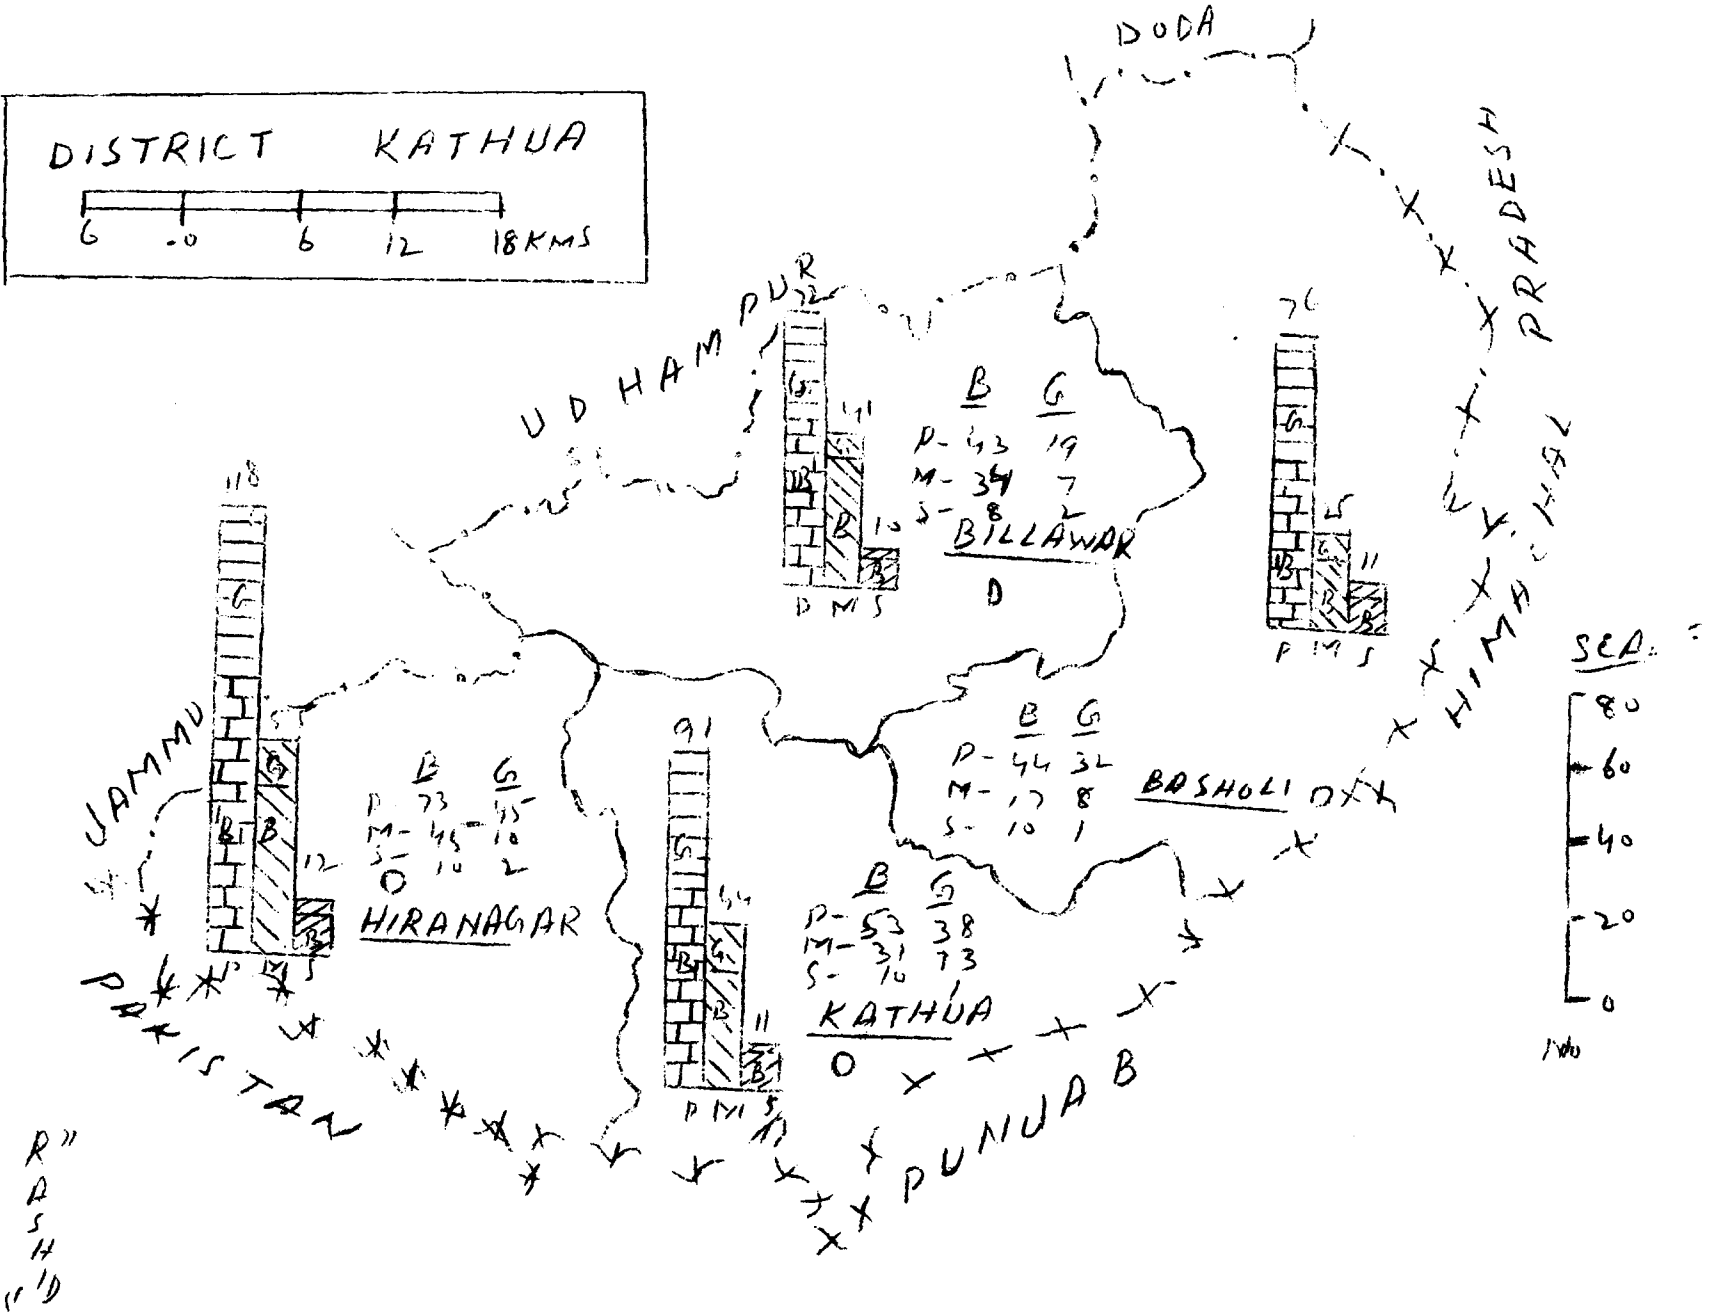 DODA
DISTRICT KATHUA
6 .0 6 12 18 KMS
UDHAMPUR
HIMACHAL PRADESH
JAMMU
PAKISTAN
PUNJAB
72
G
B
41
G
B
10
B
P M S
B G
P- 43 19
M- 34 7
S- 8 2
BILLAWAR
76
G
B
G
B
11
B
P M S
B G
P- 44 32
M- 17 8
S- 10 1
BASHOLI
118
G
B
G
B
12
B
P M S
B G
P 73 45
M- 45- 10
S- 10 2
HIRANAGAR
91
G
B
44
G
B
11
B
P M S
B G
P- 53 38
M- 31 13
S- 10 1
KATHUA
80
60
40
20
0
No
"RASHID"